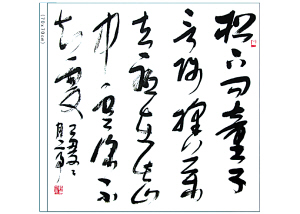 松下問童子
言師採藥
去只在此山
中雲深不
知處
(70x70cm)